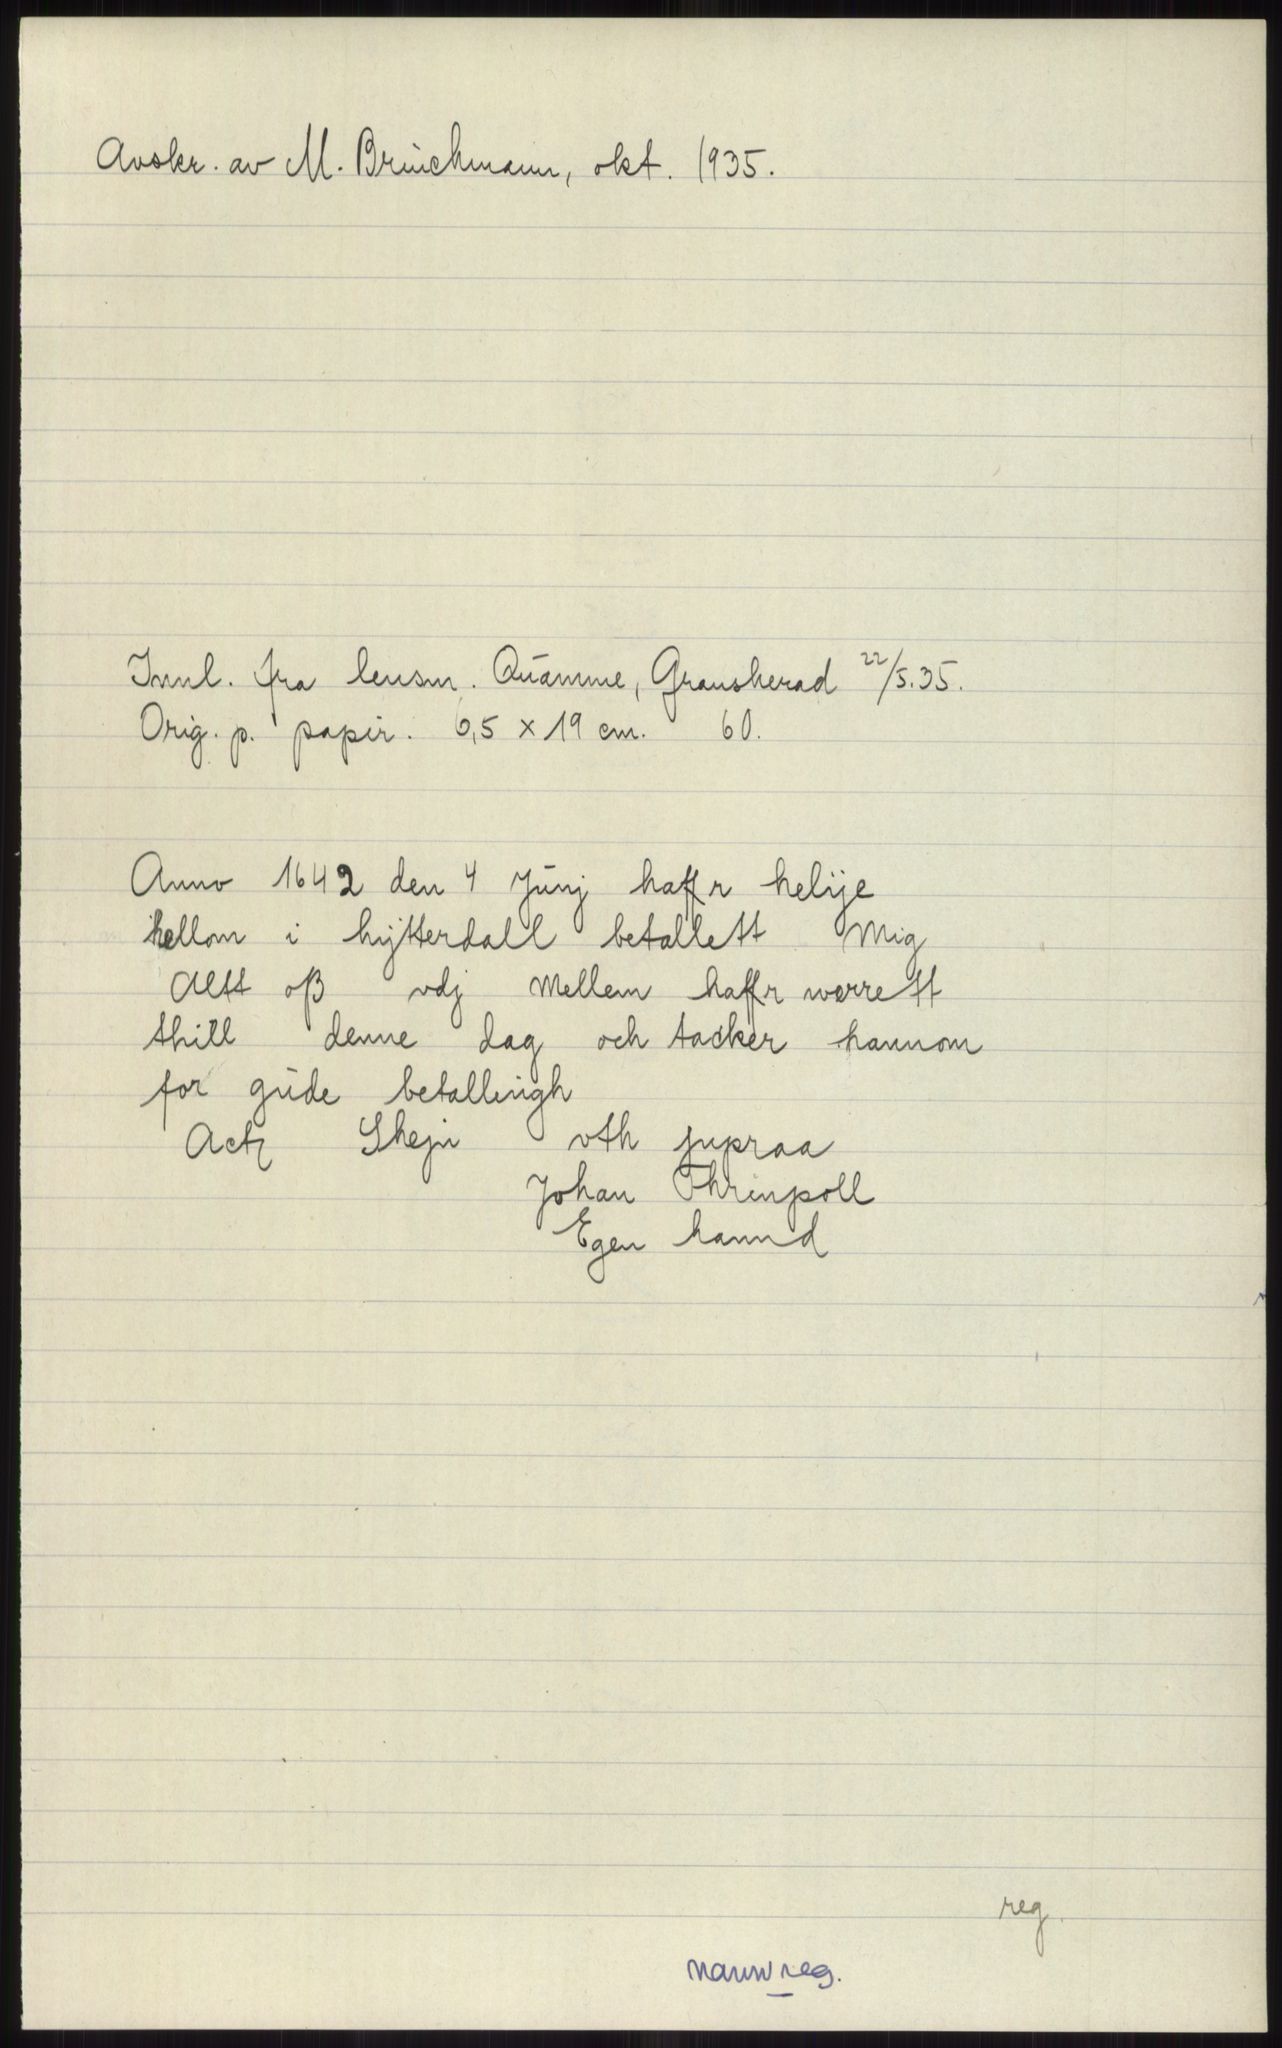 Avskr. av M. Brinchmann, okt. 1935.
Innl. fra lensm. Quamme, Gransherad 22/5.35.
Orig. p. papir. 6,5 x 19 cm. 60.
Anno 1642 den 4 Junj haffr helije
hellom i hytterdall betallett Mig
Altt oß vdj Mellem haffr werrett
thill denne dag och tacker hannom
for gude betallingh
Act Shejn vth supraa
Johan Thrinpoll
Egen hannd
reg.
navnreg.